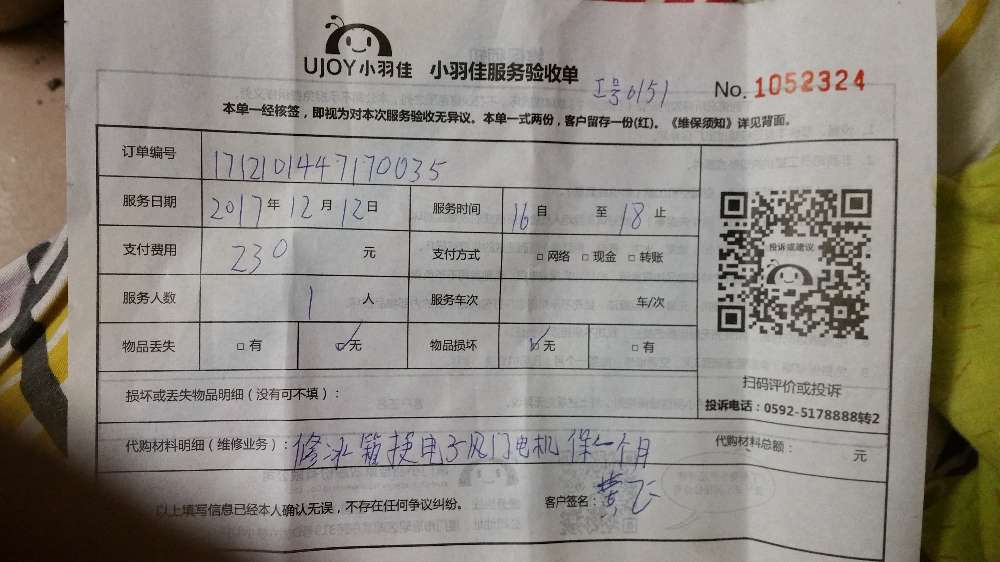 UJOY小羽佳 小羽佳服务验收单 工号0151 No. 1052324
本单一经核签，即视为对本次服务验收无异议。本单一式两份，客户留存一份(红)。《维保须知》详见背面。
订单编号 1712101447170035
服务日期 2017年12月12日 服务时间 16自 至18止
支付费用 230 元 支付方式 □网络 □现金 □转账
服务人数 1 人 服务车次 车/次
物品丢失 □有 ☑无 物品损坏 ☑无 □有
投诉或建议
扫码评价或投诉
投诉电话：0592-5178888转2
损坏或丢失物品明细（没有可不填）：
代购材料明细（维修业务）：修冰箱换电子风门电机 保一个月
代购材料总额： 元
以上填写信息已经本人确认无误，不存在任何争议纠纷。 客户签名：